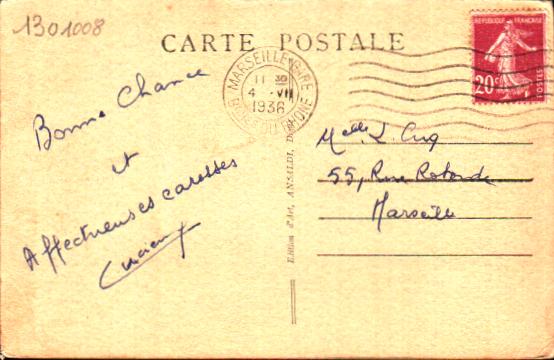 1301008
CARTE POSTALE
MARSEILLE GARE
11 30
4 - VII
1936
BCHES DU RHONE
REPUBLIQUE FRANÇAISE
20c
POSTES
Bonne Chance
et
Affectueuses caresses
Lucien
Edition d'Art, ANSALDI,
Melle L Cuq
55, Rue Rotonde
Marseille